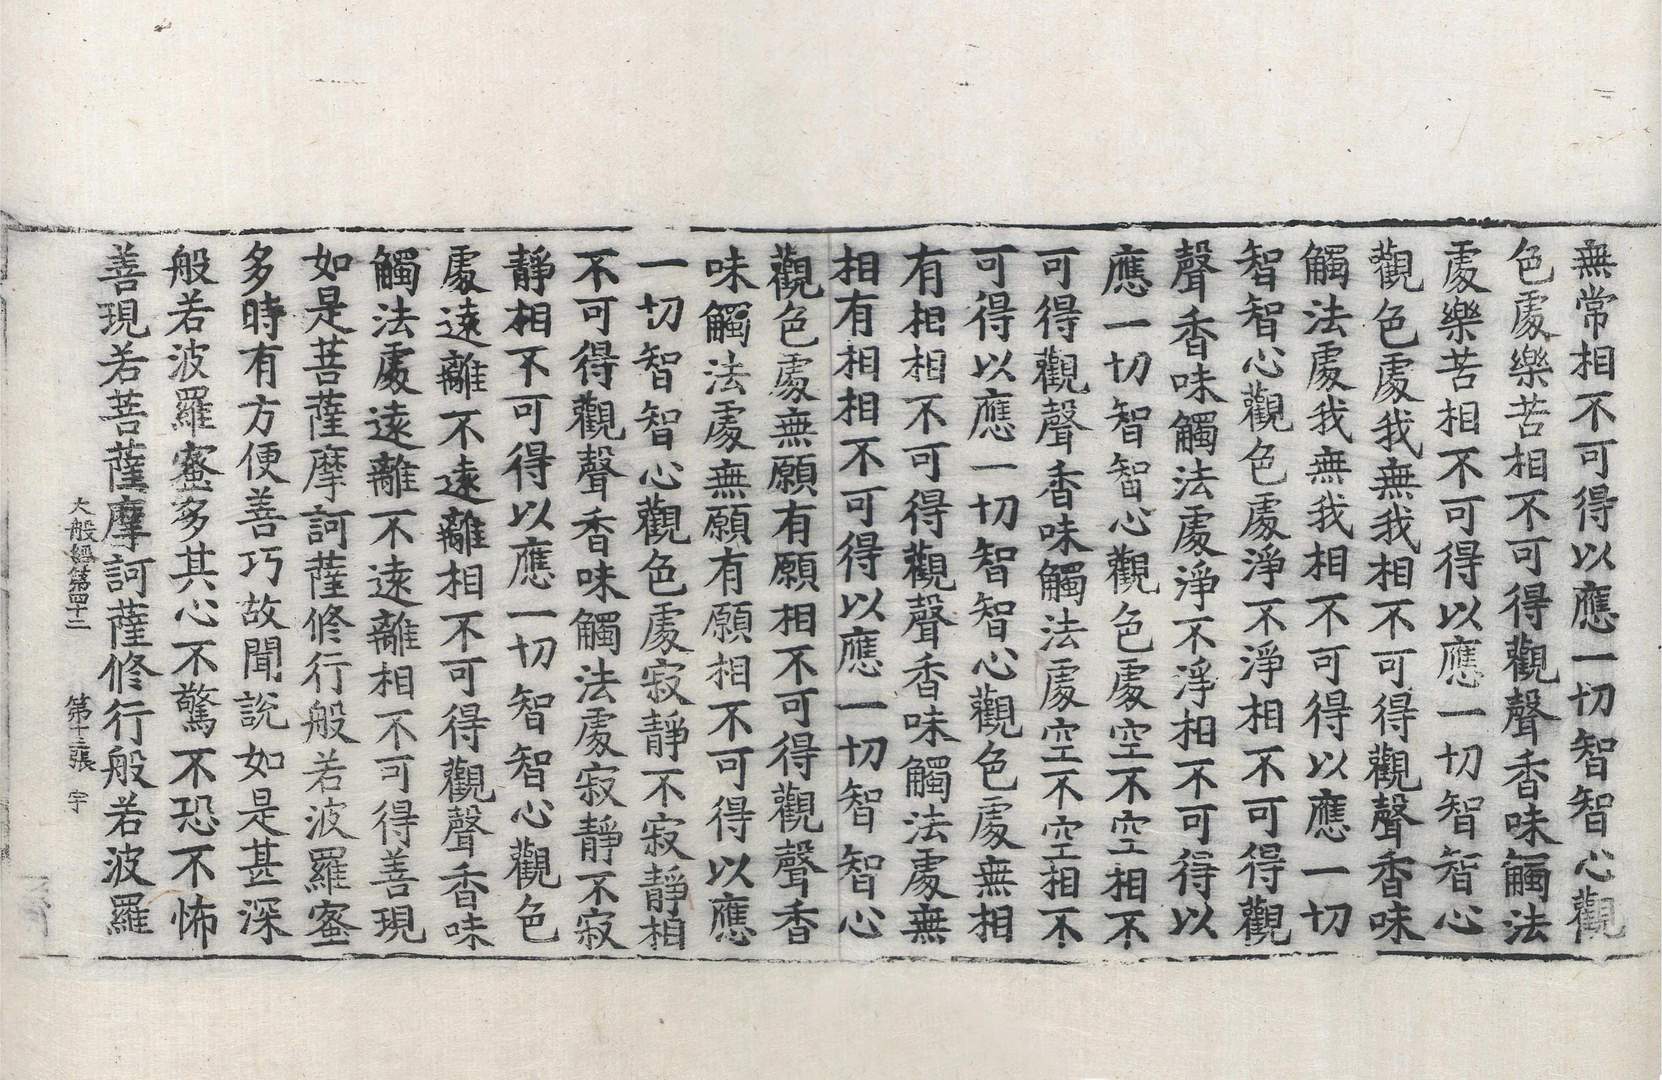 無常相不可得以應一切智智心觀
色處樂苦相不可得觀聲香味觸法
處樂苦相不可得以應一切智智心
觀色處我無我相不可得觀聲香味
觸法處我無我相不可得以應一切
智智心觀色處淨不淨相不可得觀
聲香味觸法處淨不淨相不可得以
應一切智智心觀色處空不空相不
可得觀聲香味觸法處空不空相不
可得以應一切智智心觀色處無相
有相相不可得觀聲香味觸法處無
相有相相不可得以應一切智智心
觀色處無願有願相不可得觀聲香
味觸法處無願有願相不可得以應
一切智智心觀色處寂靜不寂靜相
不可得觀聲香味觸法處寂靜不寂
靜相不可得以應一切智智心觀色
處遠離不遠離相不可得觀聲香味
觸法處遠離不遠離相不可得善現
如是菩薩摩訶薩修行般若波羅蜜
多時有方便善巧故聞說如是甚深
般若波羅蜜多其心不驚不恐不怖
善現若菩薩摩訶薩修行般若波羅
大般經第四十二 第十三張 宇